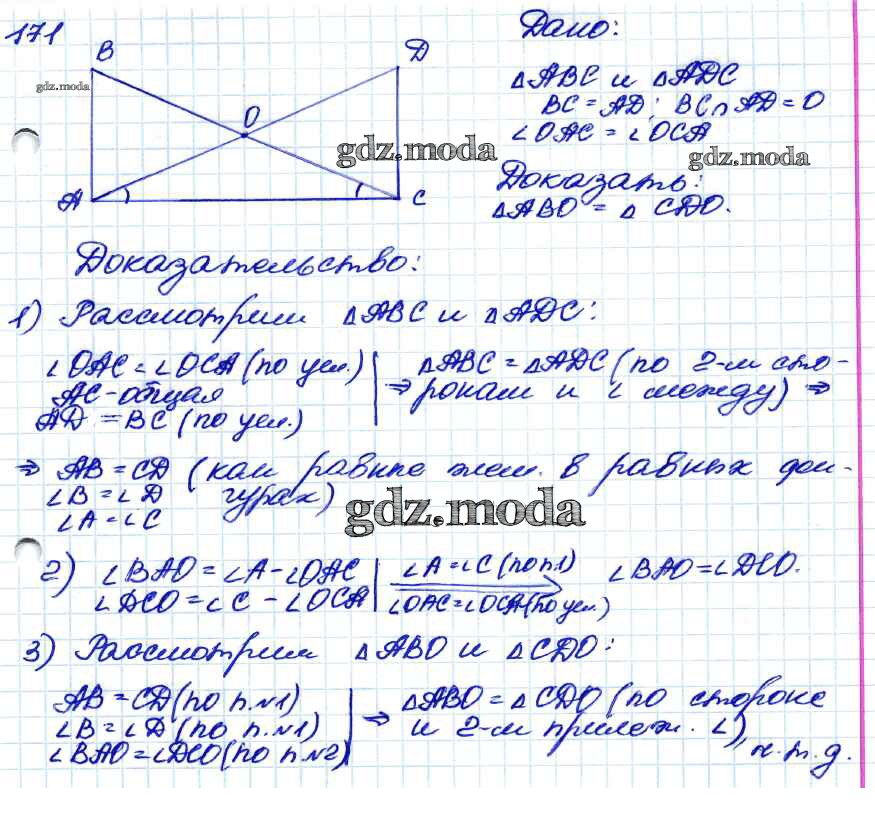 171
B
D
O
A
C
gdz.moda
Дано:
△ABC и △ADC
BC = AD; BC ∩ AD = O
∠OAC = ∠OCA
gdz.moda
gdz.moda
Доказать:
△ABO = △CDO.
Доказательство:
1) Рассмотрим △ABC и △ADC:
∠OAC = ∠OCA (по усл.)
AC - общая
AD = BC (по усл.)
⇒ △ABC = △ADC (по 2-м сто-
ронам и ∠ между) ⇒
⇒ AB = CD (как равные элем. в равных фи-
∠B = ∠D гурах)
∠A = ∠C
gdz.moda
2) ∠BAO = ∠A - ∠OAC
∠DCO = ∠C - ∠OCA
∠A = ∠C (по п.1)
∠OAC = ∠OCA (по усл.)
∠BAO = ∠DCO.
3) Рассмотрим △ABO и △CDO:
AB = CD (по п.№1)
∠B = ∠D (по п.№1)
∠BAO = ∠DCO (по п.№2)
⇒ △ABO = △CDO (по стороне
и 2-м прилеж. ∠),
ч.т.д.